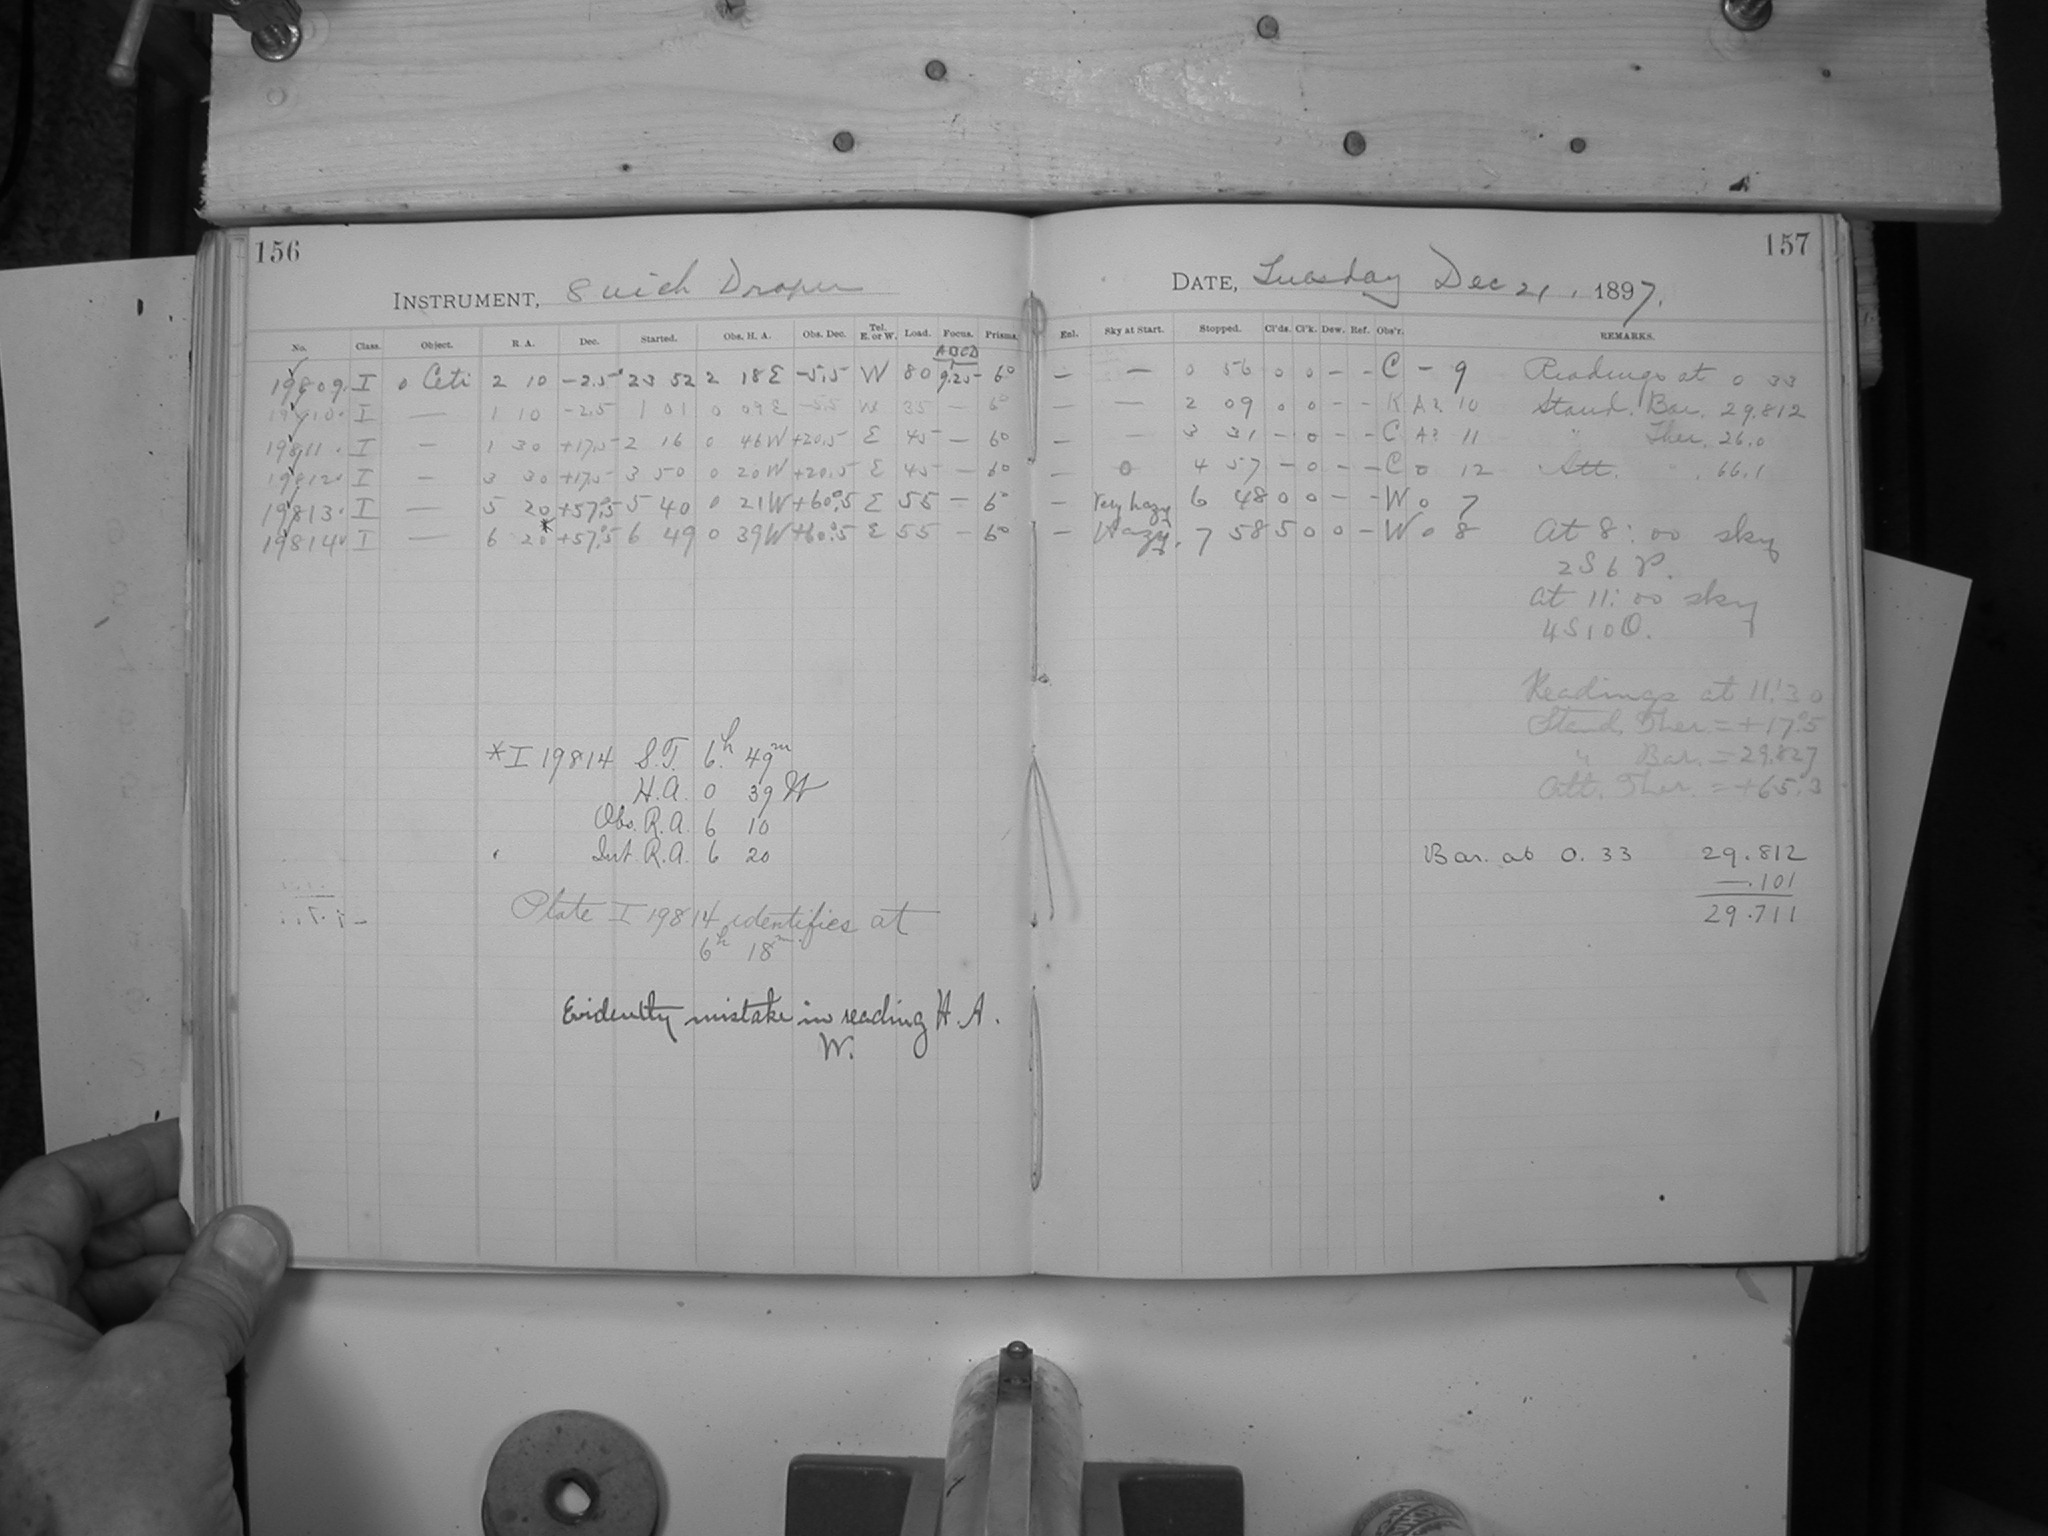 156
INSTRUMENT, 8 inch Draper
No. Class. Object. R. A. Dec. Started. Obs. H. A. Obs. Dec. Tel. E. or W. Load. Focus. Prisms.
ABCD
19809. I o Ceti 2 10 -2.5° 23 52 2 18 E -5.5 W 80 9.25- 6°
19810. I — 1 10 -2.5 1 01 0 09 E -5.5 W 35 — 6°
19811. I — 1 30 +17.5 2 16 0 46 W +20.5 E 45 — 6°
19812. I — 3 30 +17.5 3 50 0 20 W +20.5 E 45 — 6°
19813. I — 5 20 +57.°5 5 40 0 21 W +60.°5 E 55 — 6°
19814. I — 6 20* +57.°5 6 49 0 39 W +60.°5 E 55 — 6°
*I 19814 S.T. 6h 49m
H.A. 0 39 W
Obs. R.A. 6 10
Int. R.A. 6 20
Plate I 19814 identifies at
6h 18m.
Evidently mistake in reading H.A.
W.
157
DATE, Tuesday Dec 21, 1897.
Enl. Sky at Start. Stopped. Cl'ds. Cl'k. Dew. Ref. Obs'r. REMARKS.
— — 0 56 0 0 - - C - 9 Readings at 0 33
— — 2 09 0 0 - - K A? 10 Stand. Bar. 29.812
— — 3 31 - 0 - - C A? 11 " Ther. 26.0
— 0 4 57 - 0 - - C 0 12 Att. " 66.1
— Very hazy 6 48 0 0 - - W 0 7
— Hazy. 7 58 5 0 0 - W 0 8 At 8:00 sky
2S6P.
at 11:00 sky
4S10O.
Readings at 11:30
Stand. Ther. = +17.°5
" Bar. = 29.827
Att. Ther. = +65.3
Bar. at 0.33 29.812
—.101
29.711